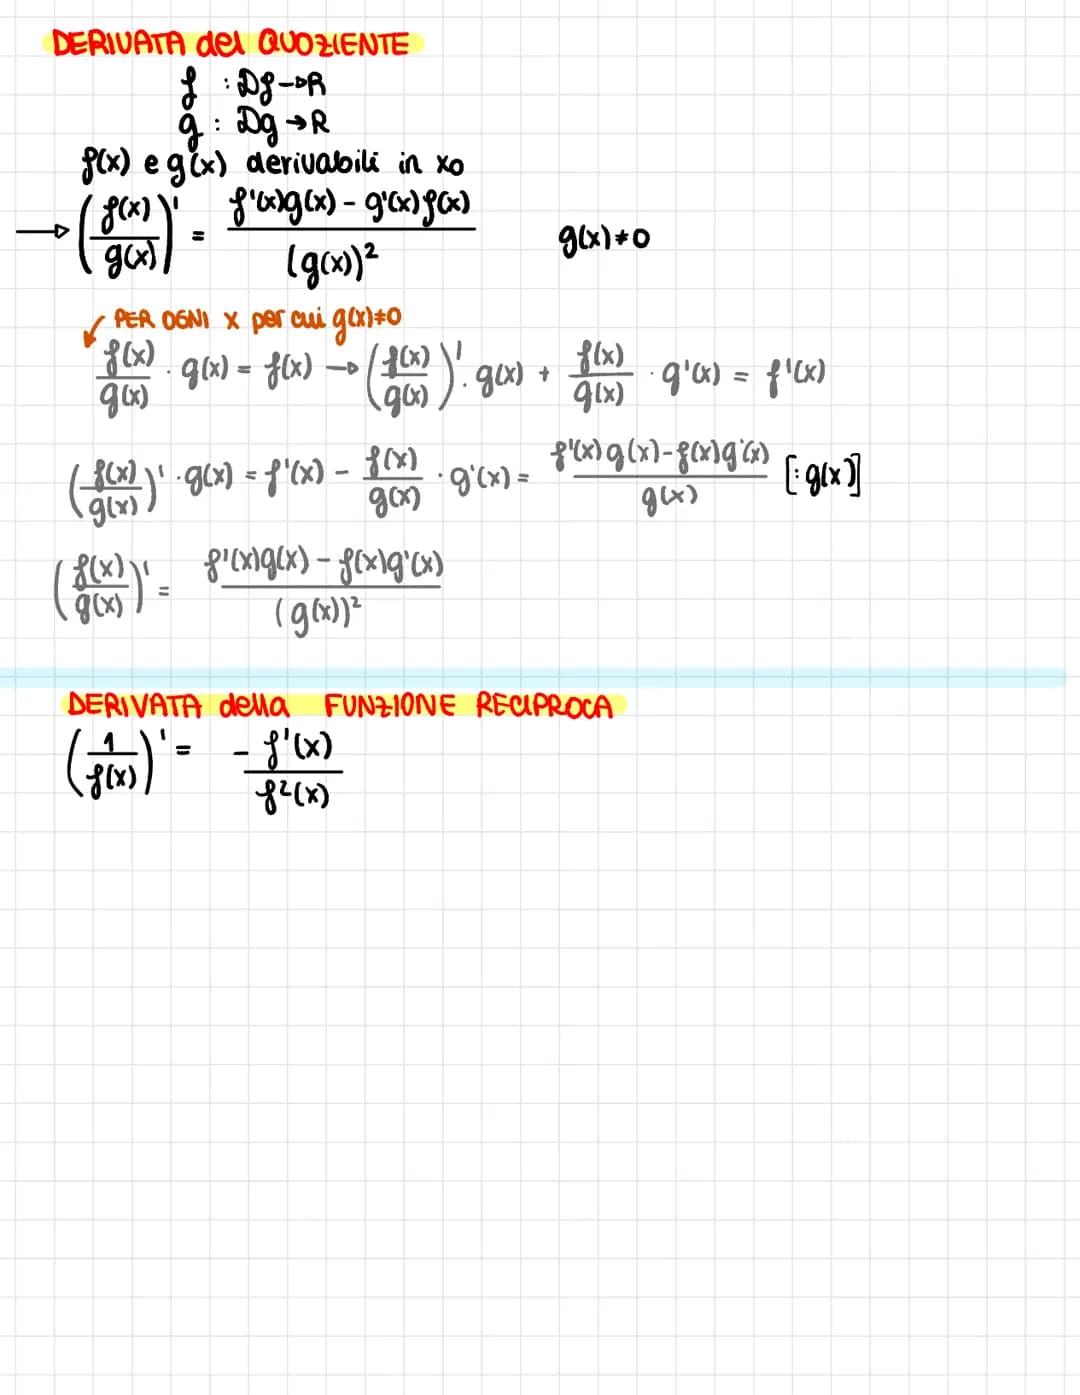 DERIVATA del QUOZIENTE
f : Df → R
g : Dg → R
f(x) e g(x) derivabili in x0
→ (f(x)/g(x))' = (f'(x)g(x) - g'(x)f(x))/(g(x))² g(x)≠0
PER OGNI x per cui g(x)≠0
f(x)/g(x) · g(x) = f(x) → (f(x)/g(x))' · g(x) + f(x)/g(x) · g'(x) = f'(x)
(f(x)/g(x))' · g(x) = f'(x) - f(x)/g(x) · g'(x) = (f'(x)g(x)-f(x)g'(x))/g(x) [:g(x)]
(f(x)/g(x))' = (f'(x)g(x) - f(x)g'(x))/(g(x))²
DERIVATA della FUNZIONE RECIPROCA
(1/f(x))' = - f'(x)/f²(x)